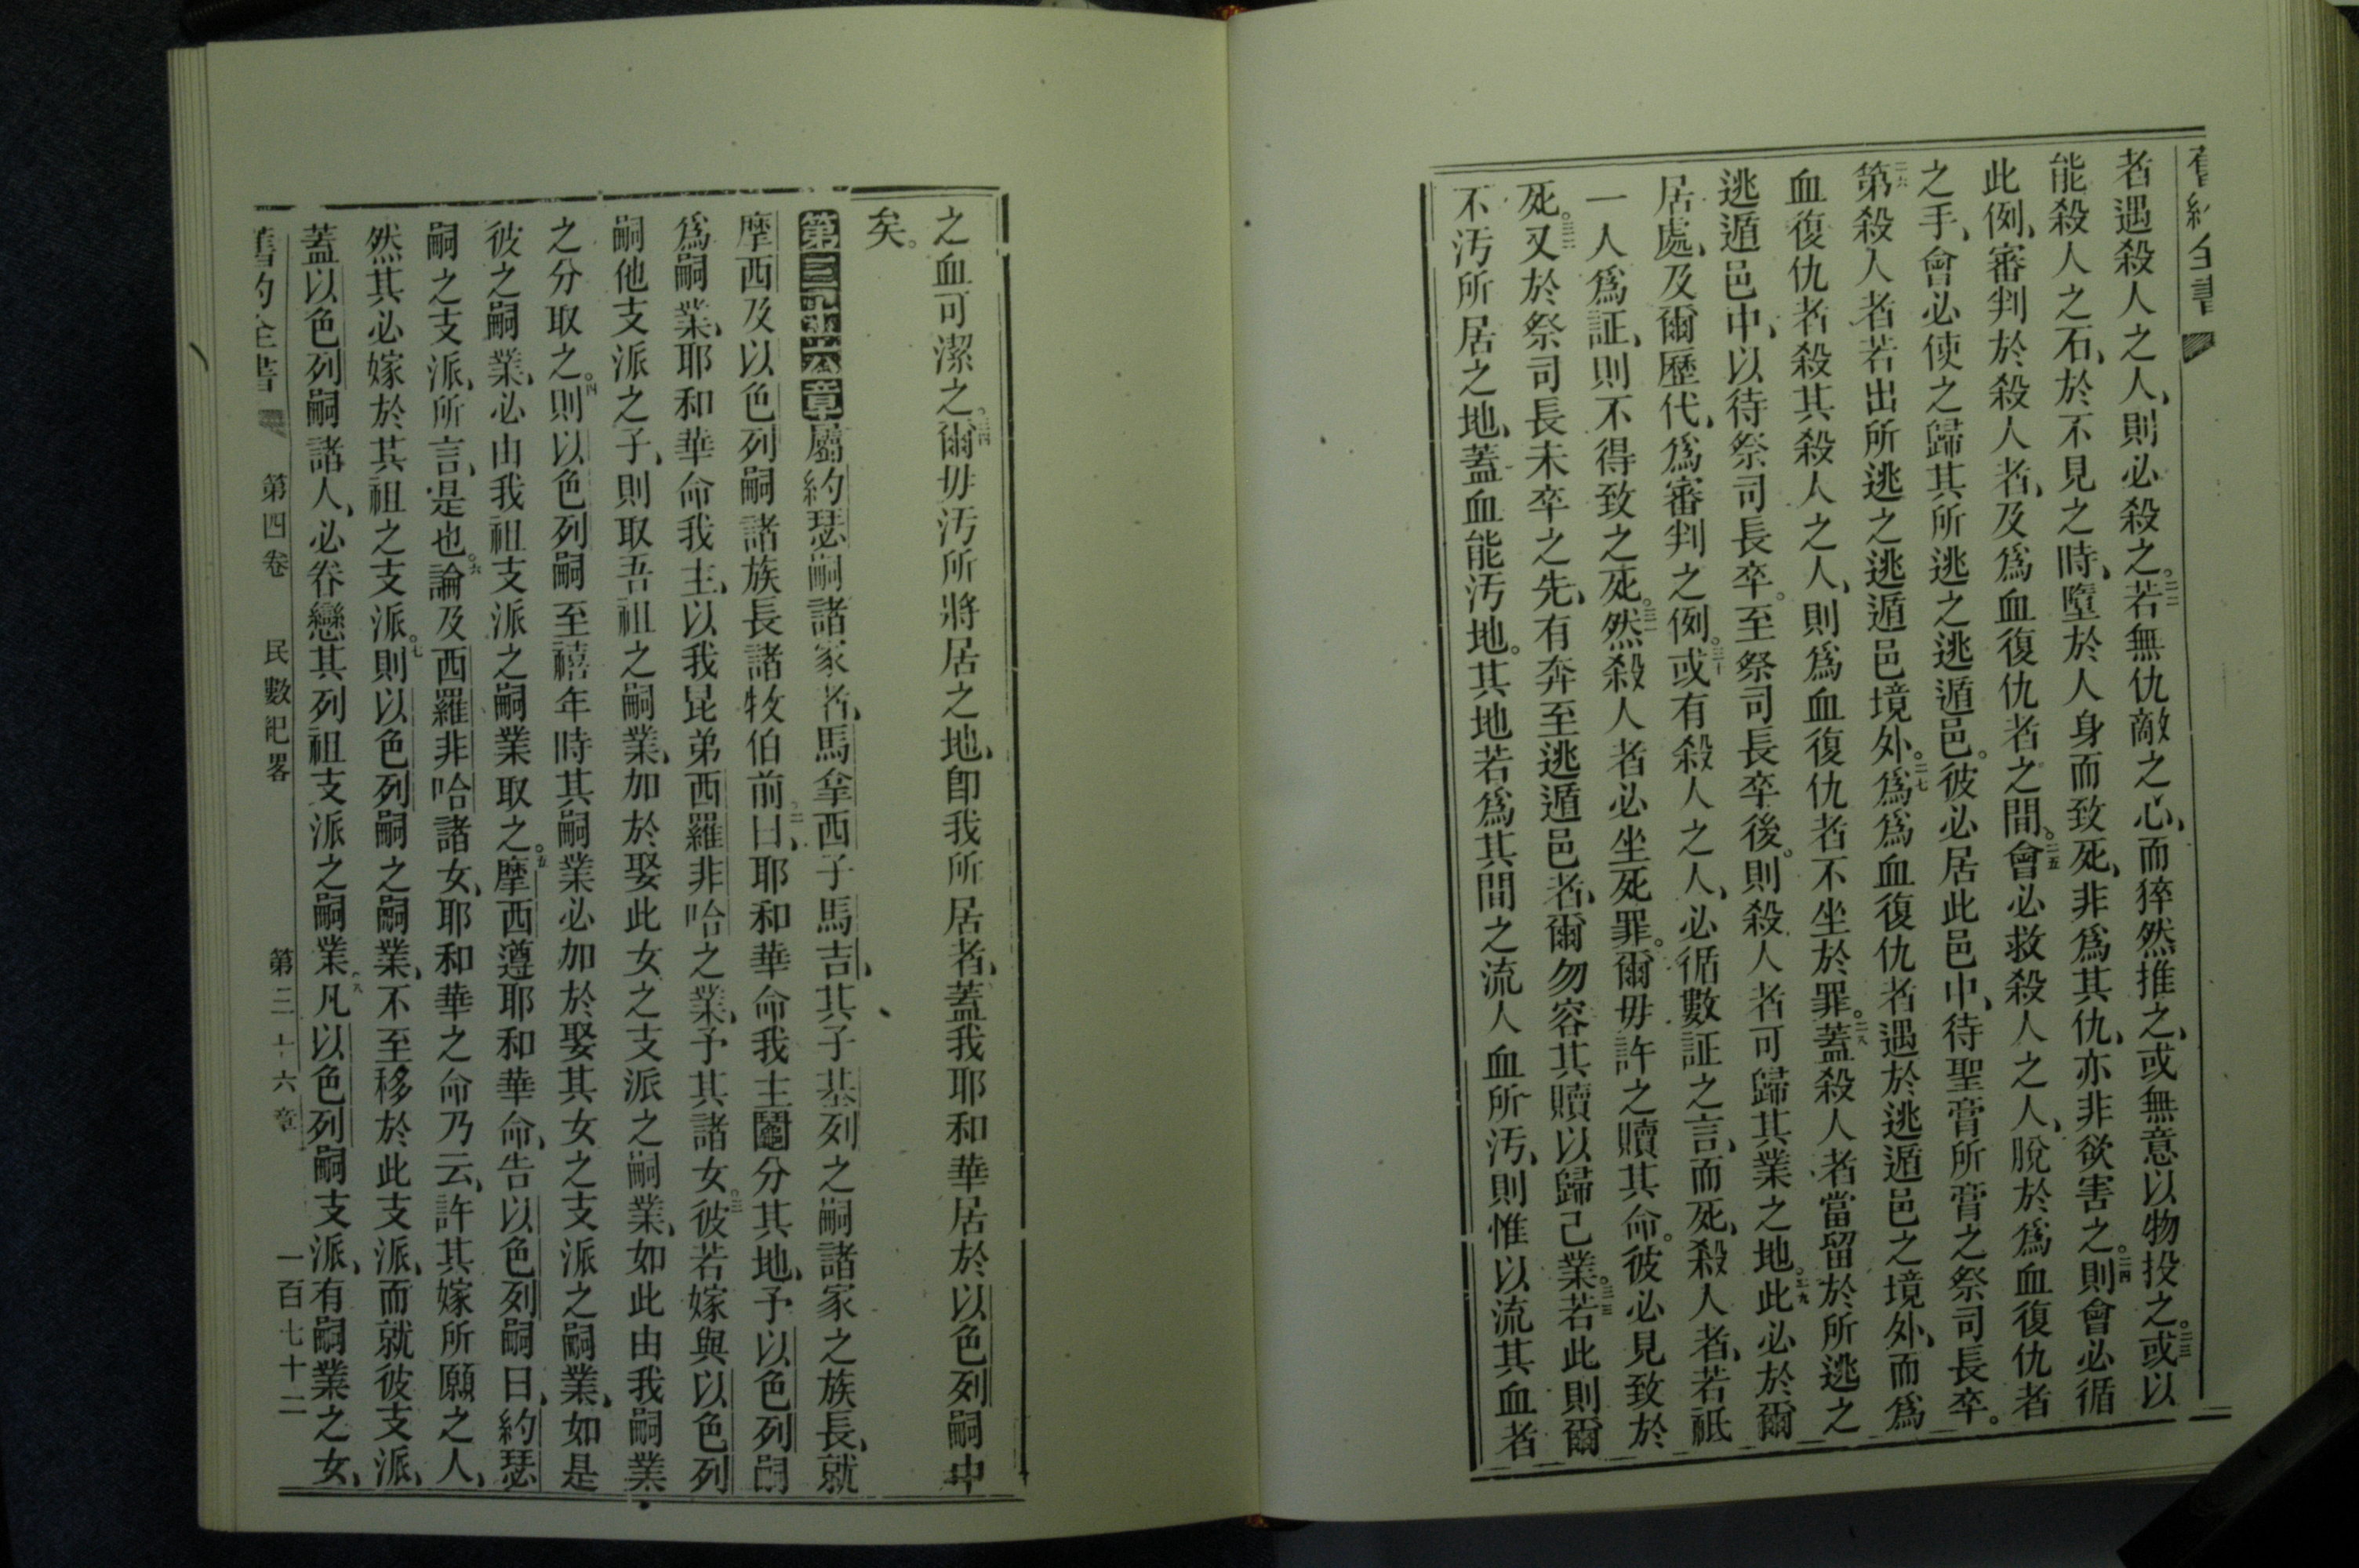 舊約全書
者遇殺人之人、則必殺之。二二若無仇敵之心、而猝然推之、或無意以物投之。二三或以
能殺人之石、於不見之時、墮於人身而致死、非爲其仇、亦非欲害之。二四則會必循
此例、審判於殺人者、及爲血復仇者之間。二五會必救殺人之人、脫於爲血復仇者
之手、會必使之歸其所逃之逃遁邑。彼必居此邑中、待聖膏所膏之祭司長卒。
二六第殺人者若出所逃之逃遁邑境外。二七爲爲血復仇者遇於逃遁邑之境外、而爲
血復仇者殺其殺人之人、則爲血復仇者不坐於罪。二八蓋殺人者當留於所逃之
逃遁邑中、以待祭司長卒。至祭司長卒後。則殺人者可歸其業之地。二九此必於爾
居處、及爾歷代、爲審判之例。三十或有殺人之人、必循數証之言、而死、殺人者、若祇
一人爲証、則不得致之死。三一然殺人者必坐死罪。爾毋許之贖其命。彼必見致於
死。三二又於祭司長未卒之先、有奔至逃遁邑者、爾勿容其贖以歸己業。三三若此則爾
不汚所居之地、蓋血能汚地。其地若爲其間之流人血所汚、則惟以流其血者
之血可潔之。三四爾毋汚所將居之地、卽我所居者、蓋我耶和華居於以色列嗣中
矣。
第三十六章屬約瑟嗣諸家者、馬拿西子馬吉、其子基列之嗣諸家之族長、就
摩西及以色列嗣諸族長諸牧伯前。二曰、耶和華命我主鬮分其地、予以色列嗣
爲嗣業、耶和華命我主、以我昆弟西羅非哈之業、予其諸女。三彼若嫁與以色列
嗣他支派之子、則取吾祖之嗣業、加於娶此女之支派之嗣業、如此由我嗣業
之分取之。四則以色列嗣至禧年時其嗣業必加於娶其女之支派之嗣業、如是
彼之嗣業、必由我祖支派之嗣業取之。五摩西遵耶和華命、告以色列嗣曰、約瑟
嗣之支派、所言、是也。六論及西羅非哈諸女、耶和華之命乃云、許其嫁所願之人、
然其必嫁於其祖之支派。七則以色列嗣之嗣業、不至移於此支派、而就彼支派、
蓋以色列嗣諸人、必眷戀其列祖支派之嗣業。八凡以色列嗣支派、有嗣業之女、
舊約全書 第四卷 民數紀畧 第三十六章 一百七十二